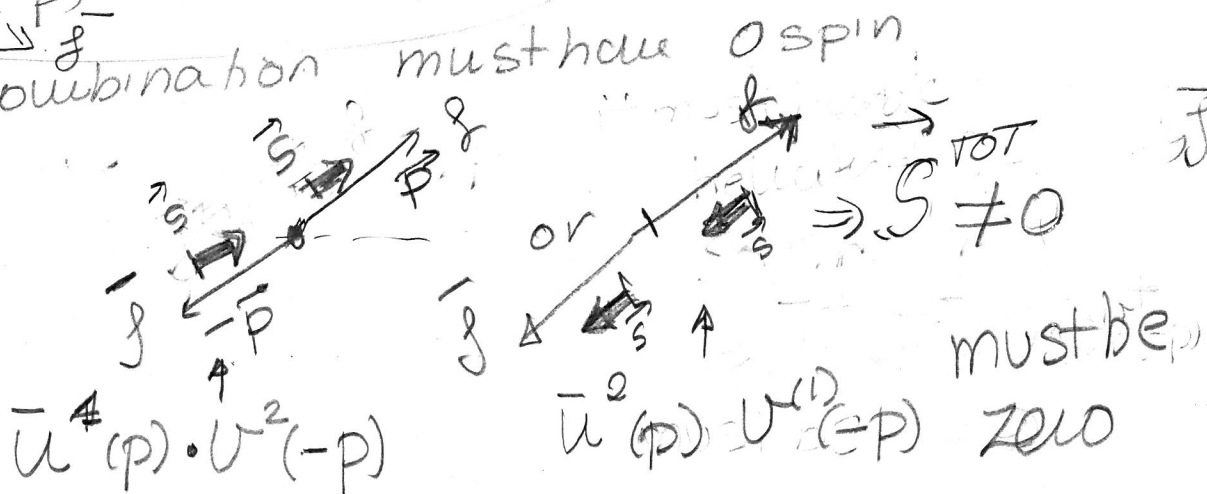 f̄
ombination must have 0 spin
s⃗ f
s⃗ p⃗
f̄ -p⃗
or
f
s⃗
f̄ s⃗
⇒ S⃗^TOT ≠ 0
must be
zero
ū^1(p)·v^2(-p)
ū^2(p) v^(1)(-p)